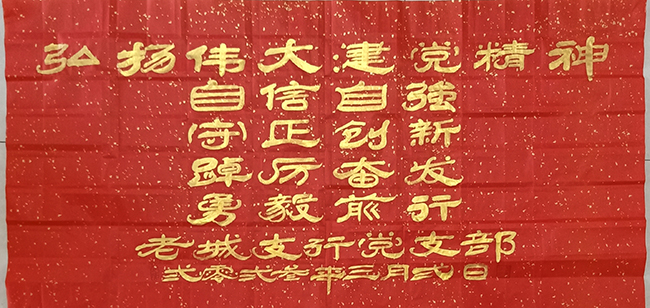 弘扬伟大建党精神
自信自強
守正创新
踔厉奋发
勇毅前行
老城支行党支部
弍零弍叁年三月弍日